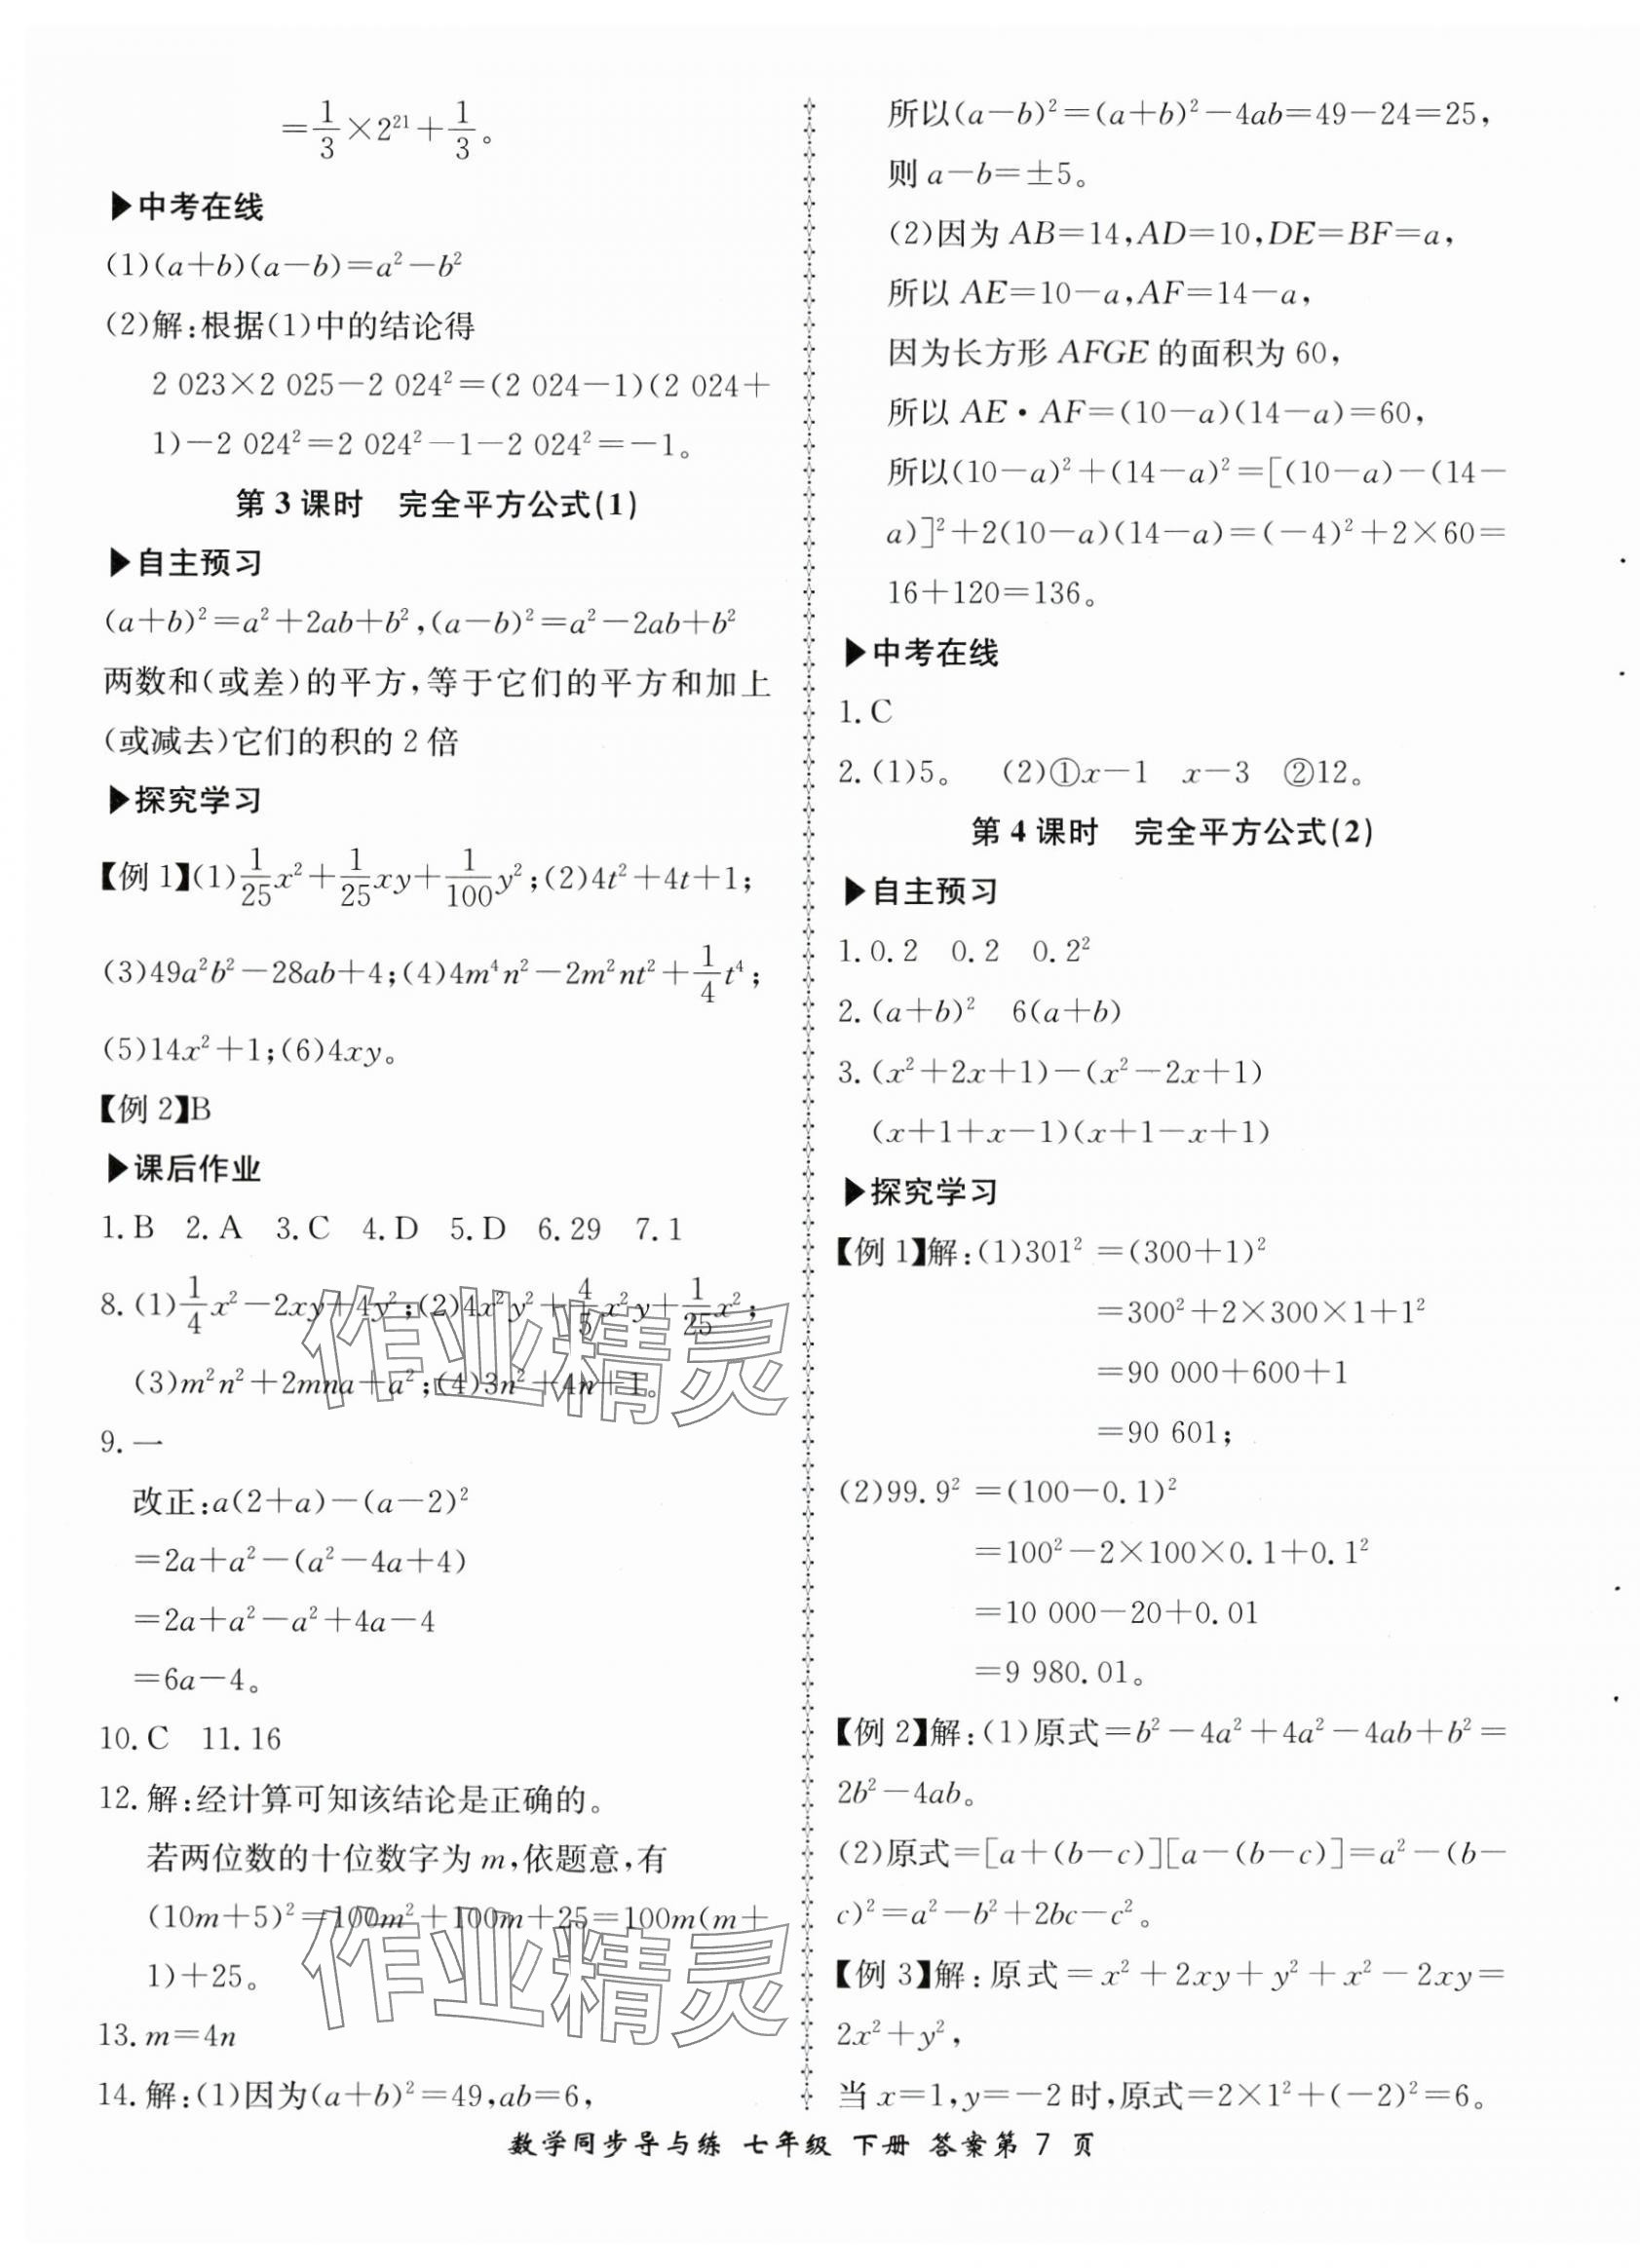 =1/3×2²¹+1/3。
▶中考在线
(1)(a+b)(a−b)=a²−b²
(2)解:根据(1)中的结论得
2 023×2 025−2 024²=(2 024−1)(2 024+
1)−2 024²=2 024²−1−2 024²=−1。
第 3 课时 完全平方公式(1)
▶自主预习
(a+b)²=a²+2ab+b²,(a−b)²=a²−2ab+b²
两数和(或差)的平方,等于它们的平方和加上
(或减去)它们的积的 2 倍
▶探究学习
【例 1】(1)1/25x²+1/25xy+1/100y²;(2)4t²+4t+1;
(3)49a²b²−28ab+4;(4)4m⁴n²−2m²nt²+1/4t⁴;
(5)14x²+1;(6)4xy。
【例 2】B
▶课后作业
1.B 2.A 3.C 4.D 5.D 6.29 7.1
8.(1)1/4x²−2xy+4y²;(2)4x²y²+4/5x²y+1/25x²;
(3)m²n²+2mna+a²;(4)3n²+4n+1。
9.一
改正:a(2+a)−(a−2)²
=2a+a²−(a²−4a+4)
=2a+a²−a²+4a−4
=6a−4。
10.C 11.16
12.解:经计算可知该结论是正确的。
若两位数的十位数字为 m,依题意,有
(10m+5)²=100m²+100m+25=100m(m+
1)+25。
13.m=4n
14.解:(1)因为(a+b)²=49,ab=6,
所以(a−b)²=(a+b)²−4ab=49−24=25,
则 a−b=±5。
(2)因为 AB=14,AD=10,DE=BF=a,
所以 AE=10−a,AF=14−a,
因为长方形 AFGE 的面积为 60,
所以 AE·AF=(10−a)(14−a)=60,
所以(10−a)²+(14−a)²=[(10−a)−(14−
a)]²+2(10−a)(14−a)=(−4)²+2×60=
16+120=136。
▶中考在线
1.C
2.(1)5。 (2)①x−1 x−3 ②12。
第 4 课时 完全平方公式(2)
▶自主预习
1.0.2 0.2 0.2²
2.(a+b)² 6(a+b)
3.(x²+2x+1)−(x²−2x+1)
(x+1+x−1)(x+1−x+1)
▶探究学习
【例 1】解:(1)301²=(300+1)²
=300²+2×300×1+1²
=90 000+600+1
=90 601;
(2)99.9²=(100−0.1)²
=100²−2×100×0.1+0.1²
=10 000−20+0.01
=9 980.01。
【例 2】解:(1)原式=b²−4a²+4a²−4ab+b²=
2b²−4ab。
(2)原式=[a+(b−c)][a−(b−c)]=a²−(b−
c)²=a²−b²+2bc−c²。
【例 3】解:原式=x²+2xy+y²+x²−2xy=
2x²+y²,
当 x=1,y=−2 时,原式=2×1²+(−2)²=6。
数学同步导与练 七年级 下册 答案第 7 页
作业精灵
作业精灵